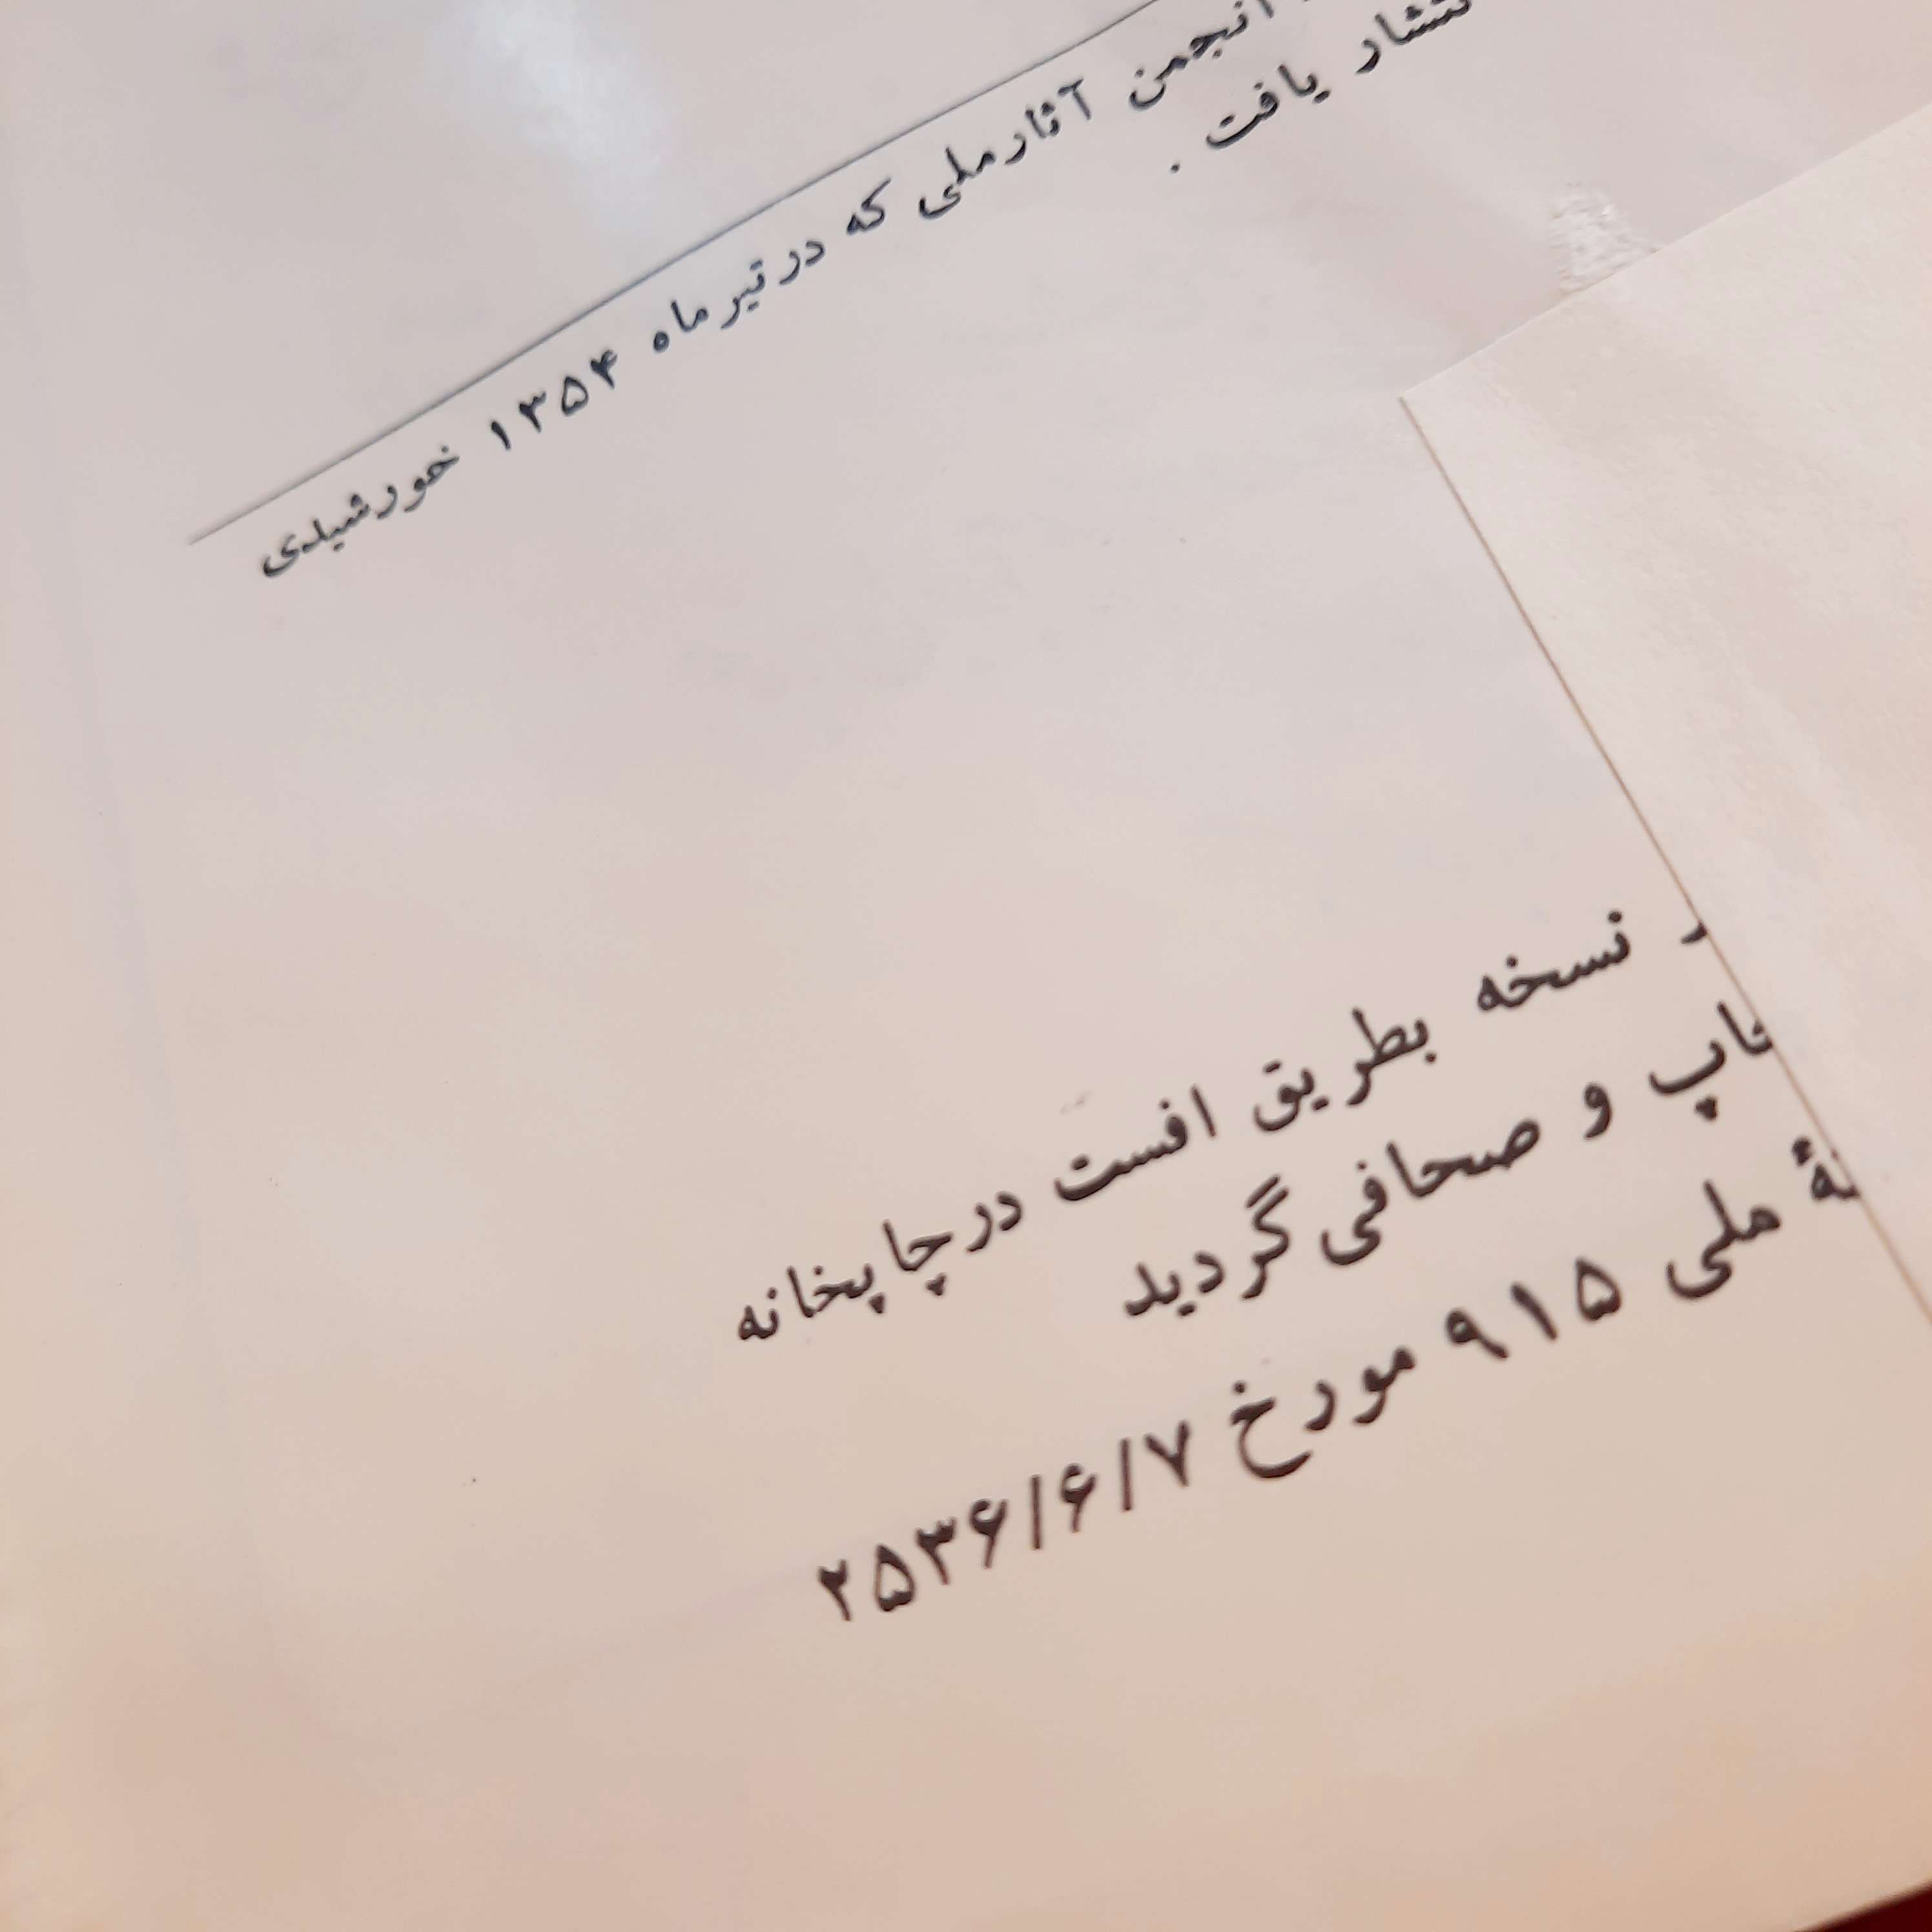 انجمن آثار ملی که در تیر ماه ۱۳۵۴ خورشیدی
یافت .
نسخه بطریق افست در چاپخانه
و صحافی گردید
ملی ۹۱۵ مورخ ۲۵۳۶/۶/۷